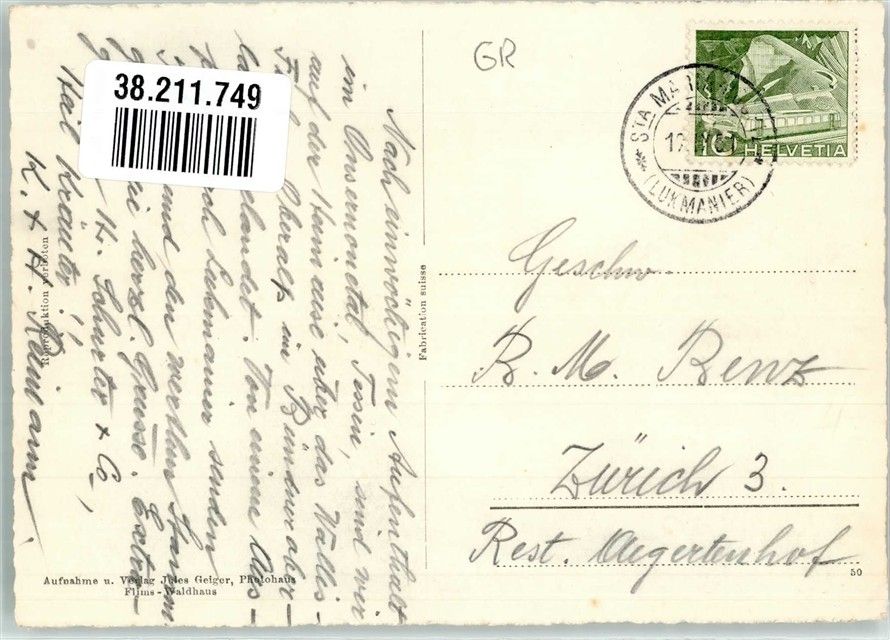 38.211.749
GR
STA MARIA
(LUKMANIER)
10
HELVETIA
Nach einwöchigem Aufenthalt
im Onsernonetal, Tessin, sind wir
auf der Heimreise über das Wallis-
Oberalp im Bündnerober-
landet. Von einem Aus-
Lukmanier senden
und den werten Stamm-
die herzl. Grüsse. Extra-
H. Schurter & Co,
Heil Kräuter!!
K. + H. Reimann.
Reproduktion verboten
Fabrication suisse
Geschw.
R. M. Renz
Zürich 3.
Rest. Aegertenhof
Aufnahme u. Verlag Jules Geiger, Photohaus
Flims-Waldhaus
50